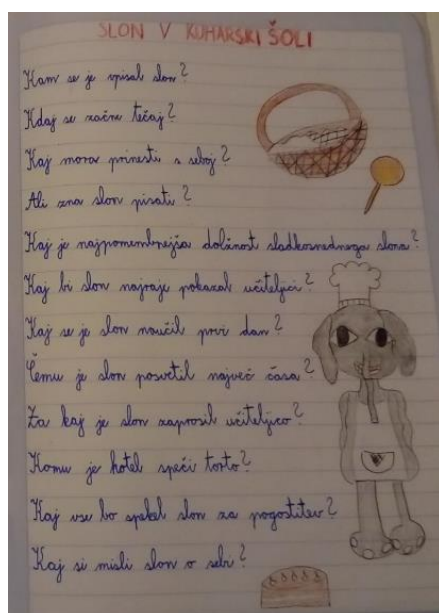 SLON V KUHARSKI ŠOLI
Kam se je vpisal slon?
Kdaj se začne tečaj?
Kaj mora prinesti s seboj?
Ali zna slon pisati?
Kaj je najpomembnejša dolžnost sladkosnednega slona?
Kaj bi slon najraje pokazal učiteljici?
Kaj se je slon naučil prvi dan?
Čemu je slon posvetil največ časa?
Za kaj je slon zaprosil učiteljico?
Komu je hotel speči torto?
Kaj vse bo spekel slon za pogostitev?
Kaj si misli slon o sebi?